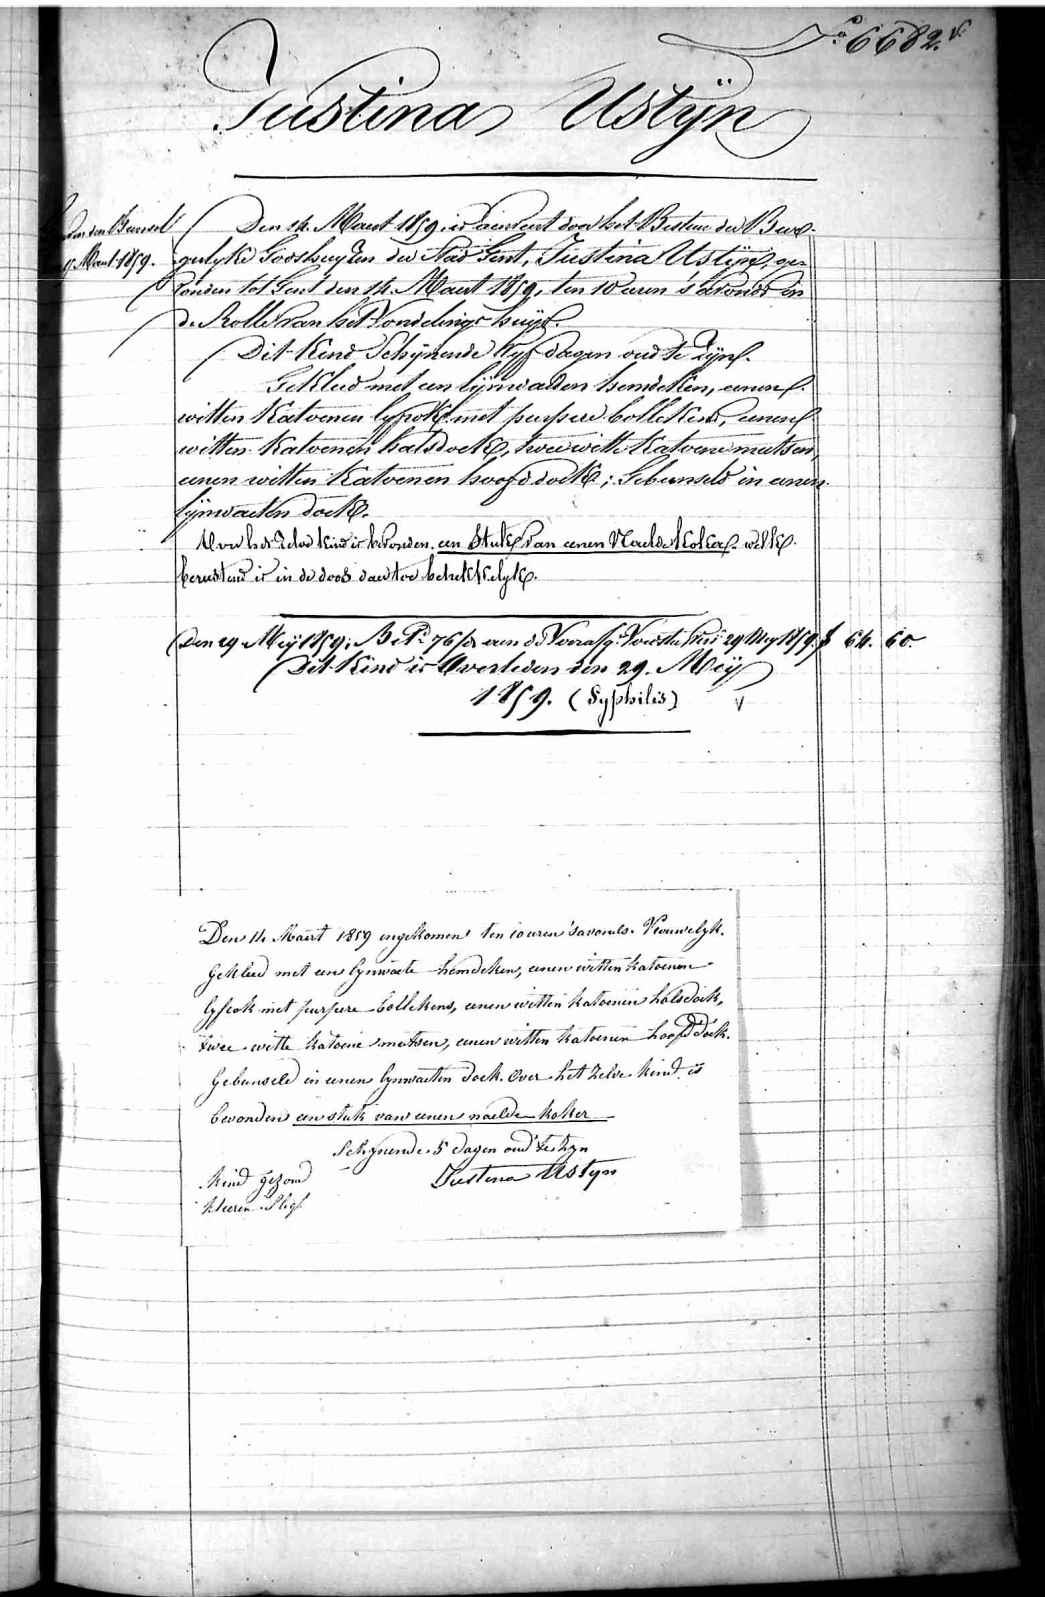 N.° 6682.
Justina Ustÿn
Den 14. Maart 1859. is aenveert door het Bestuer der Bur-
gerlyke Godshuyzen der Stad Gent, Justina Ustÿn, ge-
vonden tot Gent den 14. Maert 1859, ten 10 uren 's avonds in
de Rolle van het Vondelings huys.
Dit Kind Schijnende Vyf dagen oud te zijn.
Gekleed met een lijnwaeten hemdeken, eenen
witten Katoenen lyfrok met purpere bollekens, eenen
witten Katoenen halsdoek, twee witte Katoene mutsen,
eenen witten Katoenen hoofddoek; Gebunseld in eenen
lijnwaeten doek.
Over het zelve kind is bevonden een Stuk van eenen Naeldekoker welke
berustend is in de doos daertoe betrekkelyk.
Den 29 Meÿ 1859; Bet. 76 aen de 29 Mey 1859. f 64. 60.
Dit Kind is Overleden den 29. Meÿ
1859. (Syphilis)
Den 14 Maart 1859 ingekomen ten 10 uren 's avonds. Vrouwelyk.
Gekleed met een lynwaete hemdeken, eenen witten katoenen
lyfrok met purpere bollekens, eenen witten katoenen halsdoek,
twee witte katoene mutsen, eenen witten katoenen hoofddoek.
Gebunseld in eenen lynwaeten doek. Over het zelve kind is
bevonden een stuk van eenen naelde koker
Schynende 5 dagen oud te zyn
Kind gezond Justina Ustyn
kleeren Slegt